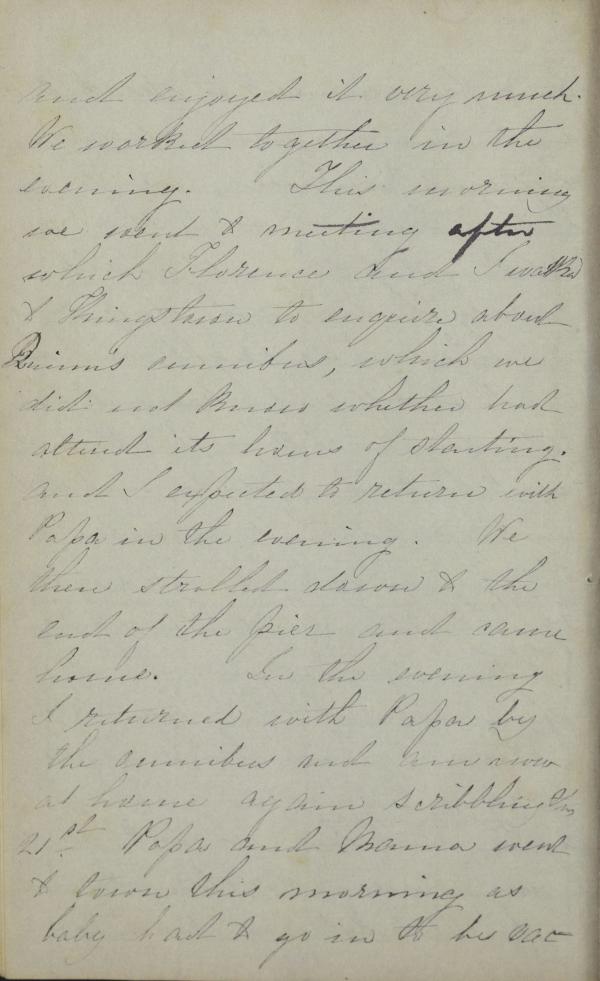 and enjoyed it very much.
We worked together in the
evening. This morning
we went to meeting after
which Florence and I walked
to Kingstown to enquire about
omnibus, which we
did not know whether had
altered its hours of starting.
and I expected to return with
Papa in the evening. We
then strolled down to the
end of the pier and came
home. In the evening
I returned with Papa by
the omnibus and am now
at home again scribbling
21st Papa and Mama went
to town this morning as
baby had to go in to be vac